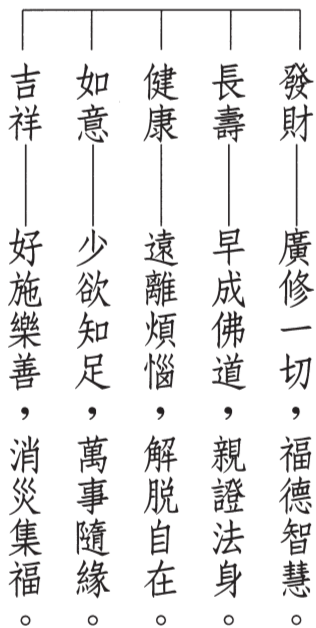 發財——廣修一切，福德智慧。
長壽——早成佛道，親證法身。
健康——遠離煩惱，解脫自在。
如意——少欲知足，萬事隨緣。
吉祥——好施樂善，消災集福。